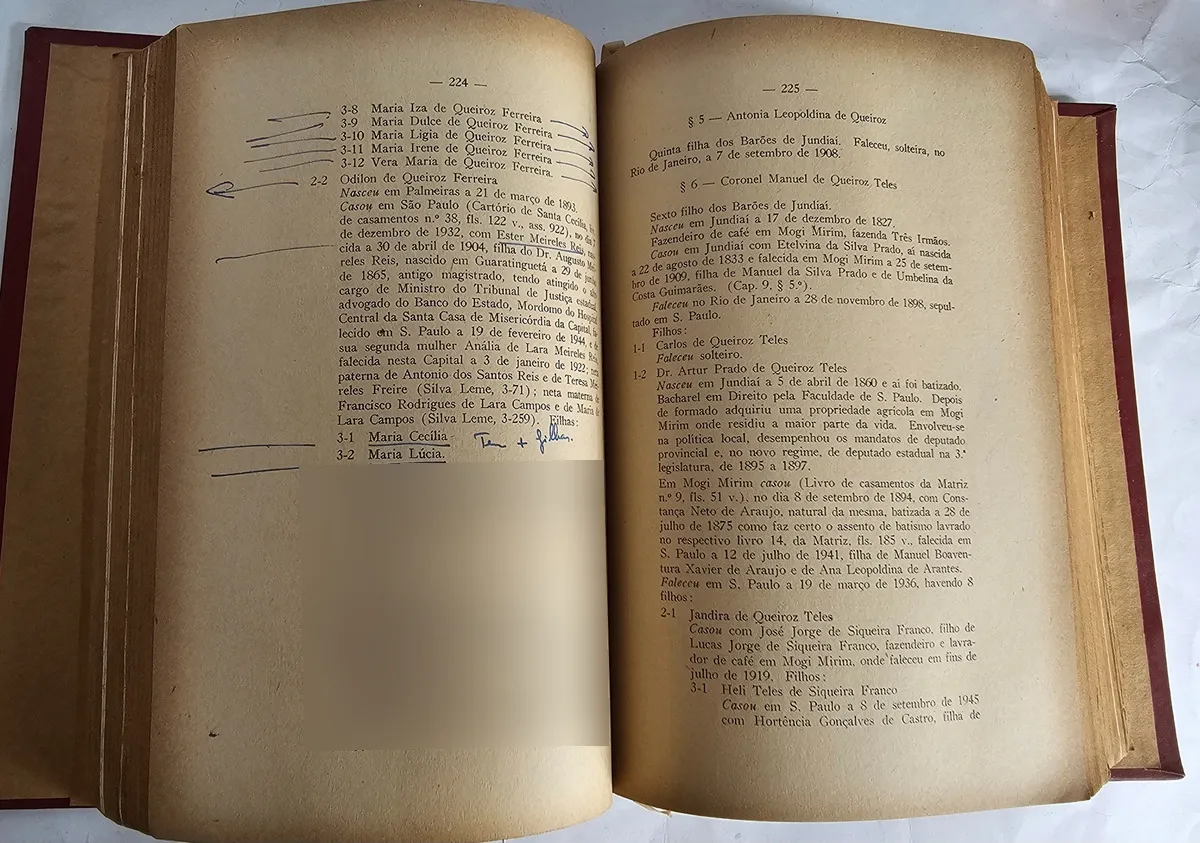 — 224 —
3-8 Maria Iza de Queiroz Ferreira
3-9 Maria Dulce de Queiroz Ferreira
3-10 Maria Ligia de Queiroz Ferreira
3-11 Maria Irene de Queiroz Ferreira
3-12 Vera Maria de Queiroz Ferreira.
2-2 Odilon de Queiroz Ferreira
Nasceu em Palmeiras a 21 de março de 1893.
Casou em São Paulo (Cartório de Santa Cecília,
de casamentos n.º 38, fls. 122 v., ass. 922), no dia
de dezembro de 1932, com Ester Meireles Reis,
cida a 30 de abril de 1904, filha do Dr. Augusto
reles Reis, nascido em Guaratinguetá a 29 de
de 1865, antigo magistrado, tendo atingido o
cargo de Ministro do Tribunal de Justiça estadual,
advogado do Banco do Estado, Mordomo do Hospital
Central da Santa Casa de Misericórdia da Capital,
lecido em S. Paulo a 19 de fevereiro de 1944, e
sua segunda mulher Anália de Lara Meireles
falecida nesta Capital a 3 de janeiro de 1922;
paterna de Antonio dos Santos Reis e de Teresa
reles Freire (Silva Leme, 3-71); neta materna de
Francisco Rodrigues de Lara Campos e de Maria
Lara Campos (Silva Leme, 3-259). Filhas:
3-1 Maria Cecília Tem + filhas.
3-2 Maria Lúcia.
— 225 —
§ 5 — Antonia Leopoldina de Queiroz
Quinta filha dos Barões de Jundiaí. Faleceu, solteira, no
Rio de Janeiro, a 7 de setembro de 1908.
§ 6 — Coronel Manuel de Queiroz Teles
Sexto filho dos Barões de Jundiaí.
Nasceu em Jundiaí a 17 de dezembro de 1827.
Fazendeiro de café em Mogi Mirim, fazenda Três Irmãos.
Casou em Jundiaí com Etelvina da Silva Prado, aí nascida
a 22 de agosto de 1833 e falecida em Mogi Mirim a 25 de setem-
bro de 1909, filha de Manuel da Silva Prado e de Umbelina da
Costa Guimarães. (Cap. 9, § 5.º).
Faleceu no Rio de Janeiro a 28 de novembro de 1898, sepul-
tado em S. Paulo.
Filhos:
1-1 Carlos de Queiroz Teles
Faleceu solteiro.
1-2 Dr. Artur Prado de Queiroz Teles
Nasceu em Jundiaí a 5 de abril de 1860 e aí foi batizado.
Bacharel em Direito pela Faculdade de S. Paulo. Depois
de formado adquiriu uma propriedade agrícola em Mogi
Mirim onde residiu a maior parte da vida. Envolveu-se
na política local, desempenhou os mandatos de deputado
provincial e, no novo regime, de deputado estadual na 3.ª
legislatura, de 1895 a 1897.
Em Mogi Mirim casou (Livro de casamentos da Matriz
n.º 9, fls. 51 v.), no dia 8 de setembro de 1894, com Cons-
tança Neto de Araujo, natural da mesma, batizada a 28 de
julho de 1875 como faz certo o assento de batismo lavrado
no respectivo livro 14, da Matriz, fls. 185 v., falecida em
S. Paulo a 12 de julho de 1941, filha de Manuel Boaven-
tura Xavier de Araujo e de Ana Leopoldina de Arantes.
Faleceu em S. Paulo a 19 de março de 1936, havendo 8
filhos:
2-1 Jandira de Queiroz Teles
Casou com José Jorge de Siqueira Franco, filho de
Lucas Jorge de Siqueira Franco, fazendeiro e lavra-
dor de café em Mogi Mirim, onde faleceu em fins de
julho de 1919. Filhos:
3-1 Heli Teles de Siqueira Franco
Casou em S. Paulo a 8 de setembro de 1945
com Hortência Gonçalves de Castro, filha de